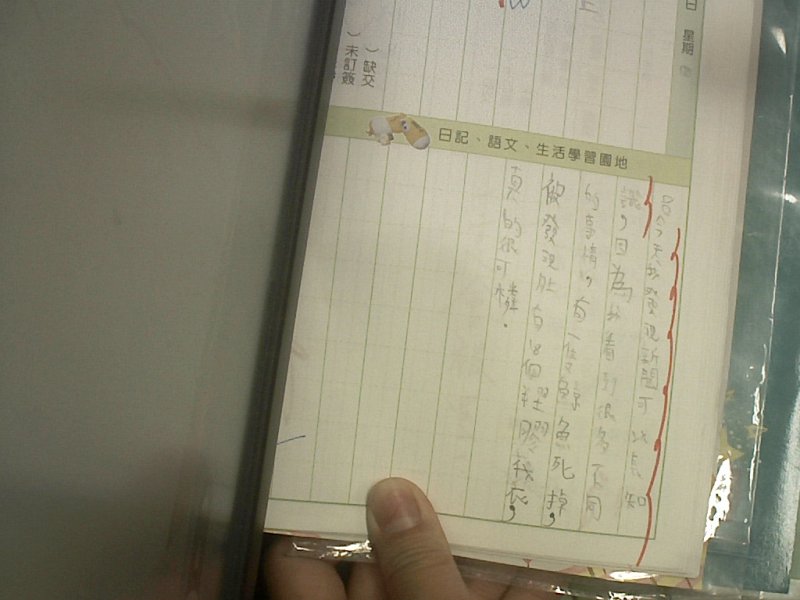 日 星期
)缺交
)未訂簽
日記、語文、生活學習園地
今天我發現新聞可以長知
識,因為我看到很多不同
的事情,有一隻鯨魚死掉,
發現肚有8個塑膠袋,
真的很可憐。